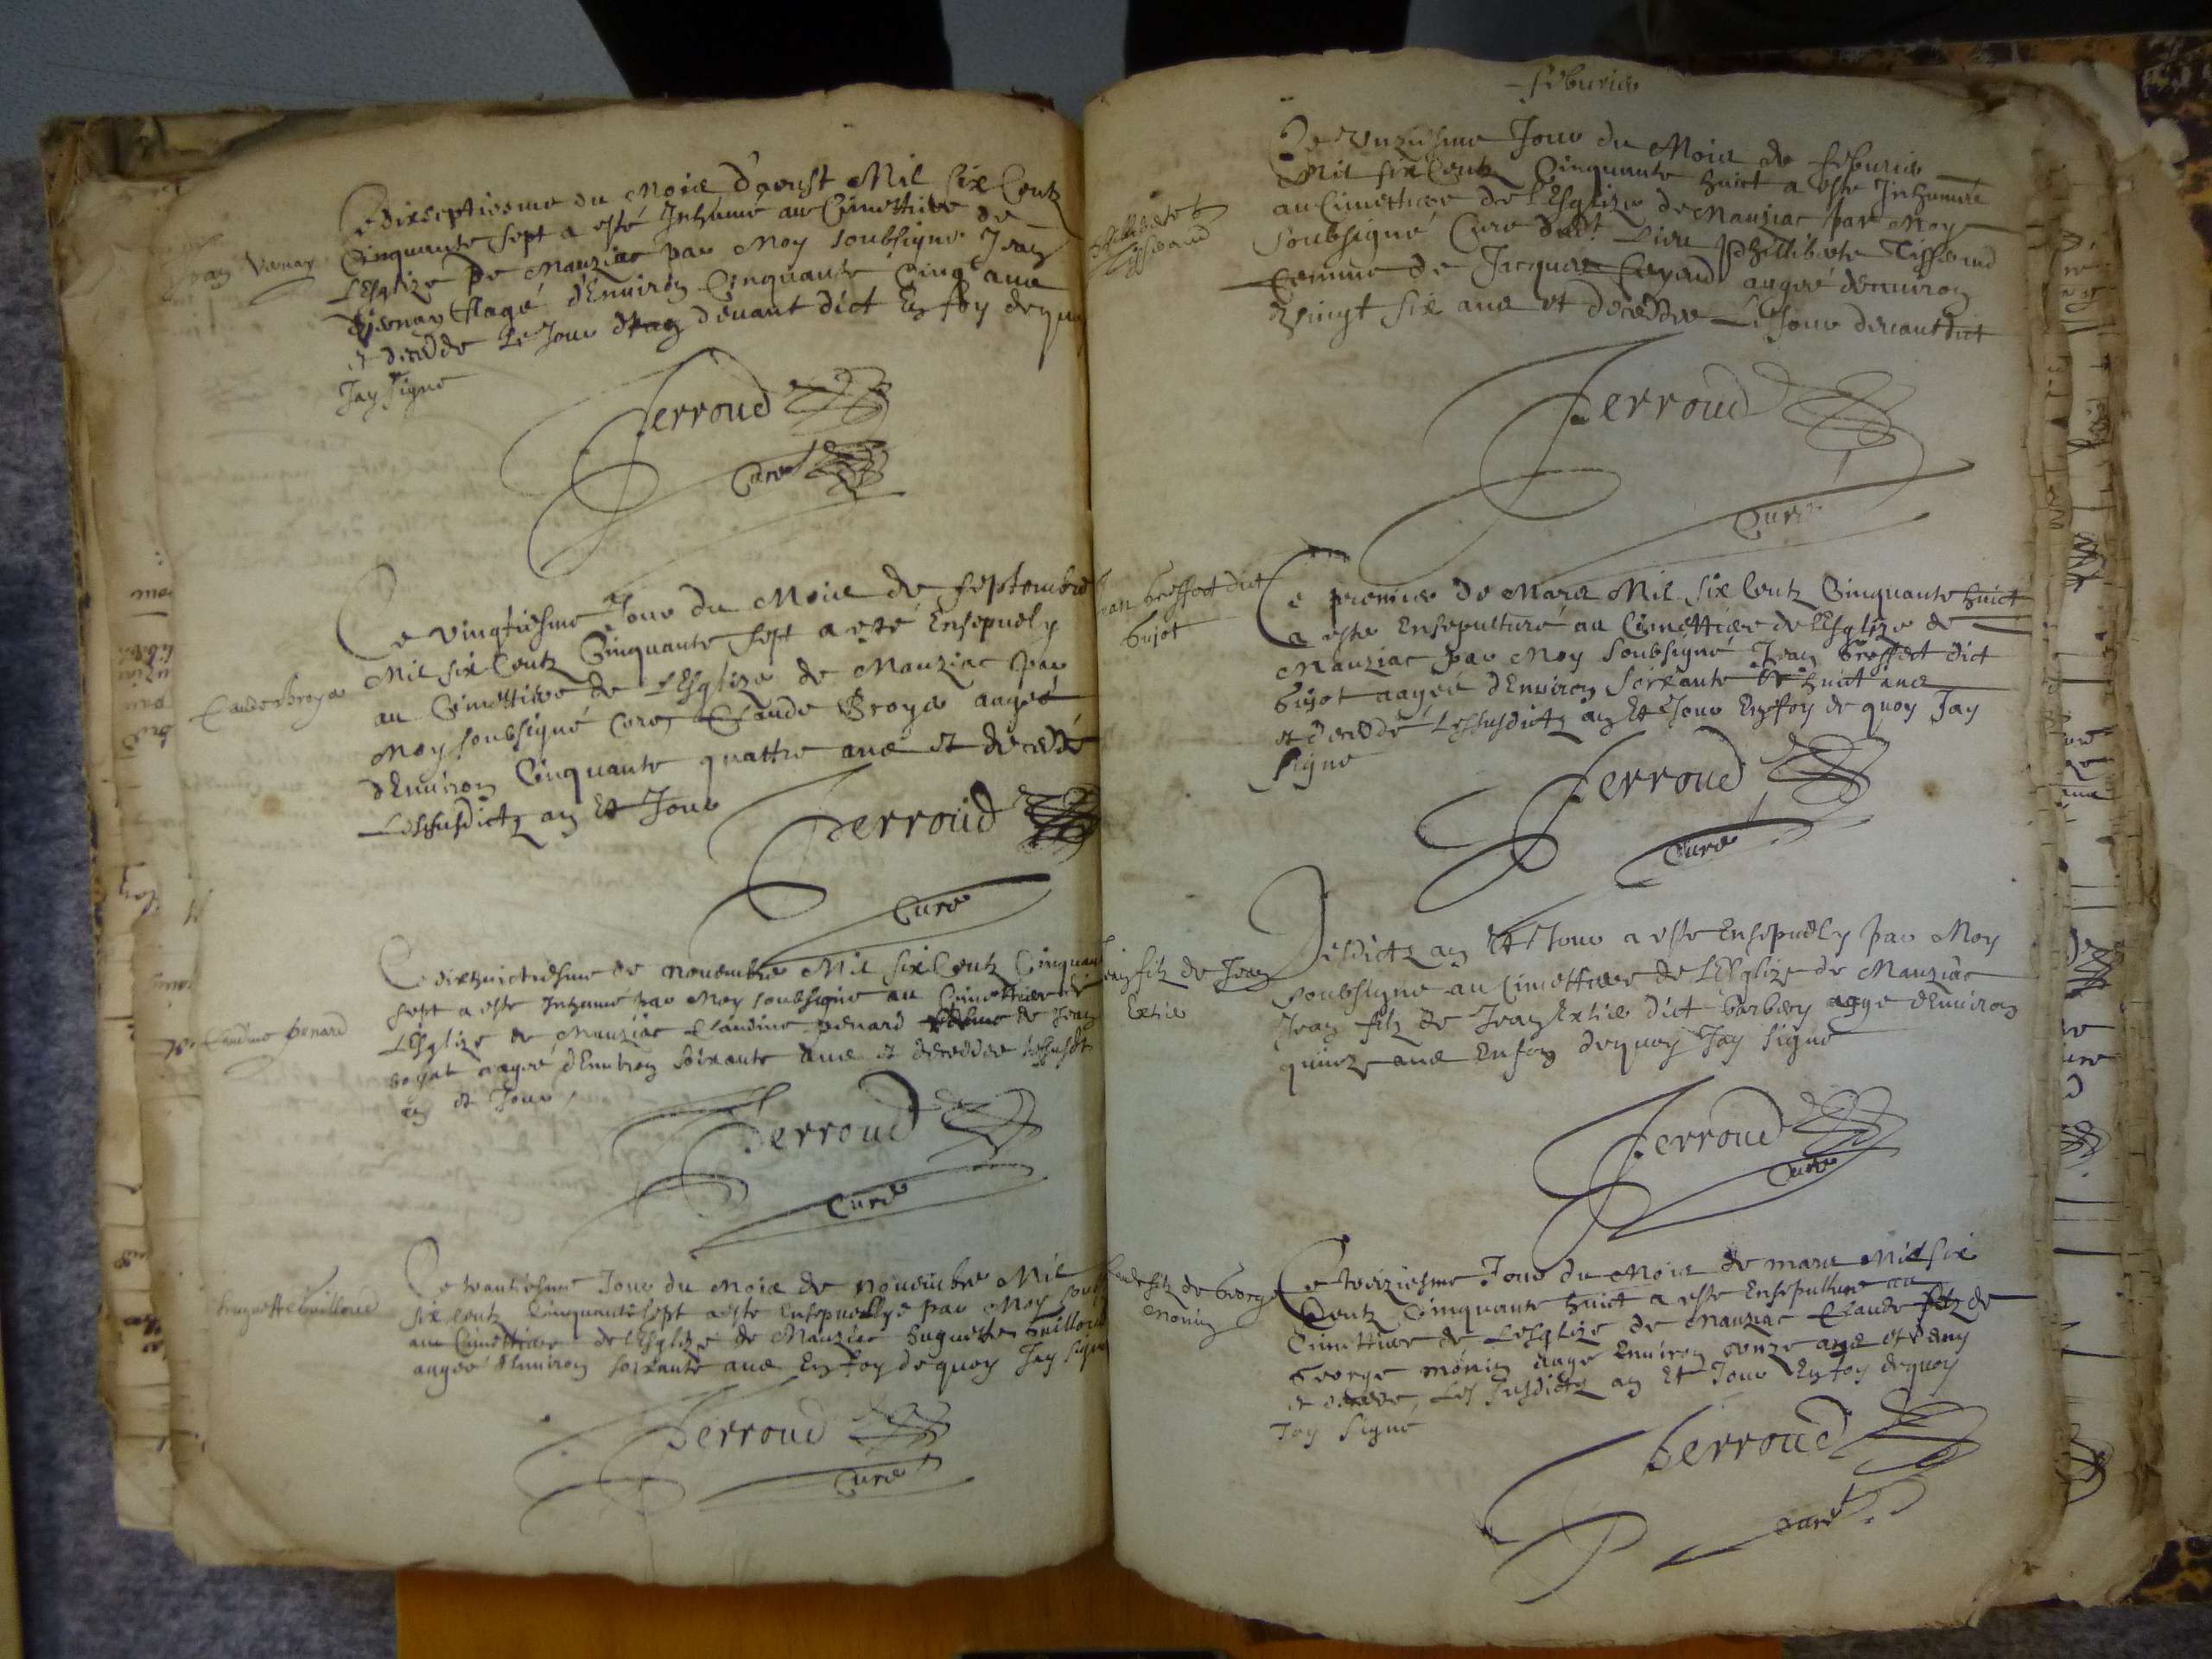 Jean Vienay
Ce dixseptiesme du Mois d'aoust Mil six Centz
Cinquante sept a esté Inhumé au Cimettiere de
L'Esglize de Manziac par Moy soubsigné Jean
aagé d'Environ Cinquante Cinq ans
et decedde Le Jour devant dict En foy de quoy
Jay signé
Perroud
Curé
Claude Broye
Ce vingtiesme Jour du Mois de septembre
Mil six Centz Cinquante sept a esté Ensepuely
au Cimettiere de L'Esglize de Manziac par
Moy soubsigné Curé Claude Broye aagé
d'Environ Cinquante quattre ans et decedé
Lessusdictz an Et Jour
Perroud
Curé
Claudine penard
Ce dixhuictiesme de novembre Mil six Centz Cinquante
sept a este Inhumé par Moy soubsigné au Cimettiere de
L'Esglize de Manziac Claudine penard de Jean
aagée d'Environ soixante ans et deceddee
an et Jour
Perroud
Curé
huguette Guilloud
Ce trantiesme Jour du Mois de novembre Mil
six Centz Cinquante sept a este Ensepuellye par Moy
au Cimettiere de L'Esglize de Manziac huguette Guilloud
aagée d'Environ soixante ans En foy dequoy Jay signé
Perroud
Curé
feburier
Phillibete
Tisserand
Ce unziesme Jour du Mois de feburier
Mil six Centz Cinquante huict a este Inhumée
au Cimettiere de L'Esglize de Manziac par Moy
soubsigné Curé dudt Lieu Phillibete Tisserand
femme de Jacques aagée d'environ
vingt six ans et deceddee Le Jour devant dict
Perroud
Curé
Jean Greffet dict
Gujot
Ce premier de Mars Mil six Centz Cinquante huict
a este Ensepulturé au Cimettiere de L'Esglize de
Manziac par Moy soubsigné Jean Greffet dict
Gujot aagé d'Environ soixante huict ans
et deceddé Lessusdictz an Et Jour En foy de quoy Jay
signé
Perroud
Curé
Jean filz de Jean
Extier
Lesdictz an Et Jour a este Ensepuely par Moy
soubsigné au Cimettiere de L'Esglize de Manziac
Jean filz de Jean Extier dict Barbery aagé d'Environ
quinze ans En foy dequoy Jay signé
Perroud
Curé
Claude filz de George
Monin
Ce treiziesme Jour du Mois de mars Mil six
Centz Cinquante huict a este Ensepulturé au
Cimettiere de L'Esglize de Manziac Claude filz de
George monin aagé Environ onze ans et demy
et decedé Les susdictz an Et Jour En foy dequoy
Jay signé
Perroud
Curé